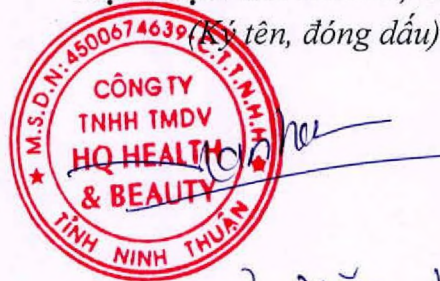 (Ký tên, đóng dấu)
M.S.D.N: 4500674639 C.T.T.N.H.H
CÔNG TY
TNHH TMDV
HQ HEALTH
& BEAUTY
TỈNH NINH THUẬN